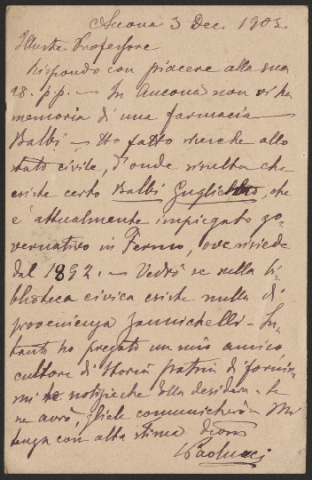 Ancona 3 Dec. 1903.
Illustre Professore
Rispondo con piacere alla sua
28. p.p. — In Ancona non vi ha
memoria di una farmacia
Balbi — Ho fatto ricerche allo
stato civile, d'onde risulta che
esiste certo Balbi Guglielmo, che
è attualmente impiegato go-
vernativo in Fermo, ove risiede
dal 1892. — Vedrò se nella bi-
blioteca civica esiste nulla di
provenienza Zannichelli — In-
tanto ho pregato un mio amico
cultore di storia patria di fornir
mi le notizie che Ella desidera. Se
ne avrò, gliele comunicherò. Mi
tenga con alta stima
Paolucci